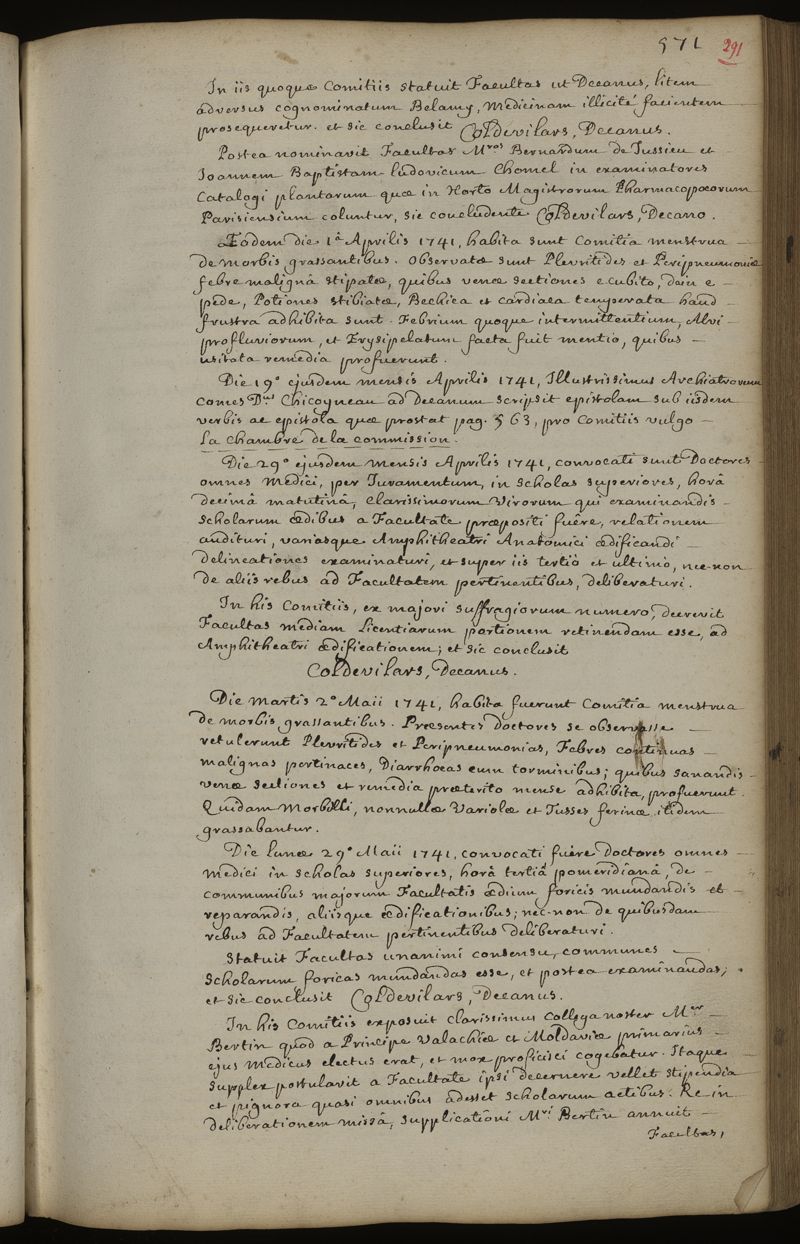 571 291
In iis quoque Comitiis statuit Facultas ut Decanus, litem
adversus cognominatum Belamy, Medicinam illicité facientem
prosequeretur. et sic conclusit Coldevilars, Decanus.
Postea nominavit Facultas M^ros Bernardum de Jussieu et
Joannem Baptistam-ludovicum Chomel in examinatores
Catalogi plantarum quæ in Horto Magistrorum Pharmacopoeorum
Parisiensium coluntur, sic concludente Coldevilars, Decano.
Eodem die 1â Aprilis 1741, habita sunt Comitia menstrua
de morbis grassantibus. Observatæ sunt Plevritides et Peripneumoniæ
febre malignâ stipatæ, quibus venæ sectiones e cubito, dein e
pede, Potiones stibiatæ, Bechica et cardiaca temperata haud
frustra adhibita sunt. Febrium quoque intermittentium, Alvi
profluviorum, et Erysipelatum facta fuit mentio, quibus
usitata remedia profuerunt.
Die 19º ejusdem mensis Aprilis 1741, Illustrissimus Archiatrorum
Comes D^nus Chicoyneau ad Decanum scripsit epistolam sub iisdem
verbis ac epistola quæ prostat pag. 563, pro Comitiis vulgo
la chambre de la commission.
Die 29º ejusdem mensis Aprilis 1741, convocati sunt Doctores
omnes Medici, per Juramentum, in scholas superiores, horâ
decimâ matutinâ, Clarissimorum Virorum qui examinandis
scholarum ædibus a Facultate præpositi fuêre, relationem
audituri, variasque Amphitheatri Anatomici ædificandi
delineationes examinaturi, et super iis tertiò et ultimò, nec-non
de aliis rebus ad Facultatem pertinentibus, deliberaturi.
In his Comitiis, ex majori suffragiorum numero, decrevit
Facultas mediam Licentiarum portionem retinendam esse, ad
Amphitheatri ædificationem; et sic conclusit
Coldevilars, Decanus.
Die Martis 2º Maii 1741, habita fuerunt Comitia menstrua
de morbis grassantibus. Præsentes Doctores se observasse
retulerunt Plevritides et Peripneumonias, Febres continuas
malignas pertinaces, Diarrhoeas cum torminibus; quibus sanandis
venæ sectiones et remedia præterito mense adhibita, profuerunt.
Quidam Morbilli, nonnullæ Variolæ et Tusses ferinæ itidem
grassabantur.
Die lunæ 29º Maii 1741, convocati fuêre Doctores omnes
Medici in scholas superiores, horâ tertiâ pomeridianâ, de
communibus majorum Facultatis ædium foricis mundandis et
reparandis, aliisque ædificationibus; nec-non de quibusdam
rebus ad Facultatem pertinentibus deliberaturi.
Statuit Facultas unanimi consensu, communes
scholarum foricas mundandas esse, et postea examinandas;
et sic conclusit Coldevilars, Decanus.
In his Comitiis exposuit clarissimus collega noster M^er
Bertin quod a Principe Valachiæ et Moldaviæ primarius
ejus Medicus electus erat, et mox proficisci cogebatur. Itaque
supplex postulavit a Facultate ipsi decernere vellet stipendia
et pignora quasi omnibus adesset scholarum actibus. Re in
deliberationem missâ, supplicationi M^ri Bertin annuit
Facultas,